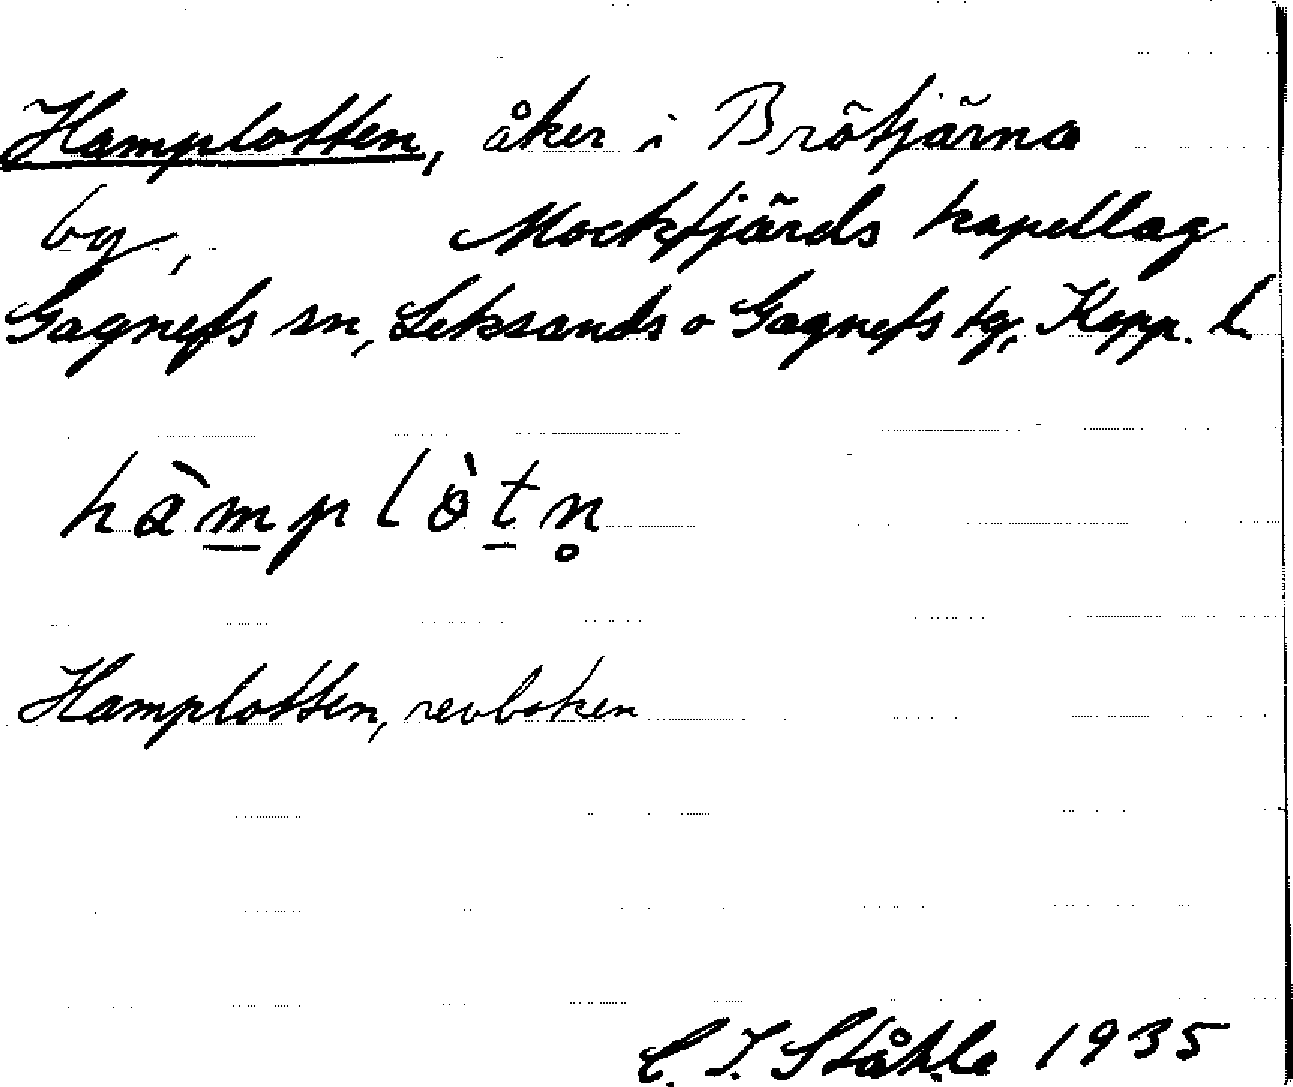 Hamplotten, åker i Brötjärna
by, Mockfjärds kapellag
Gagnefs sn, Leksands o Gagnefs tg, Kopp. l.
hàmplòtn̥
Hamplotten, revboken
C. I. Ståhle 1935